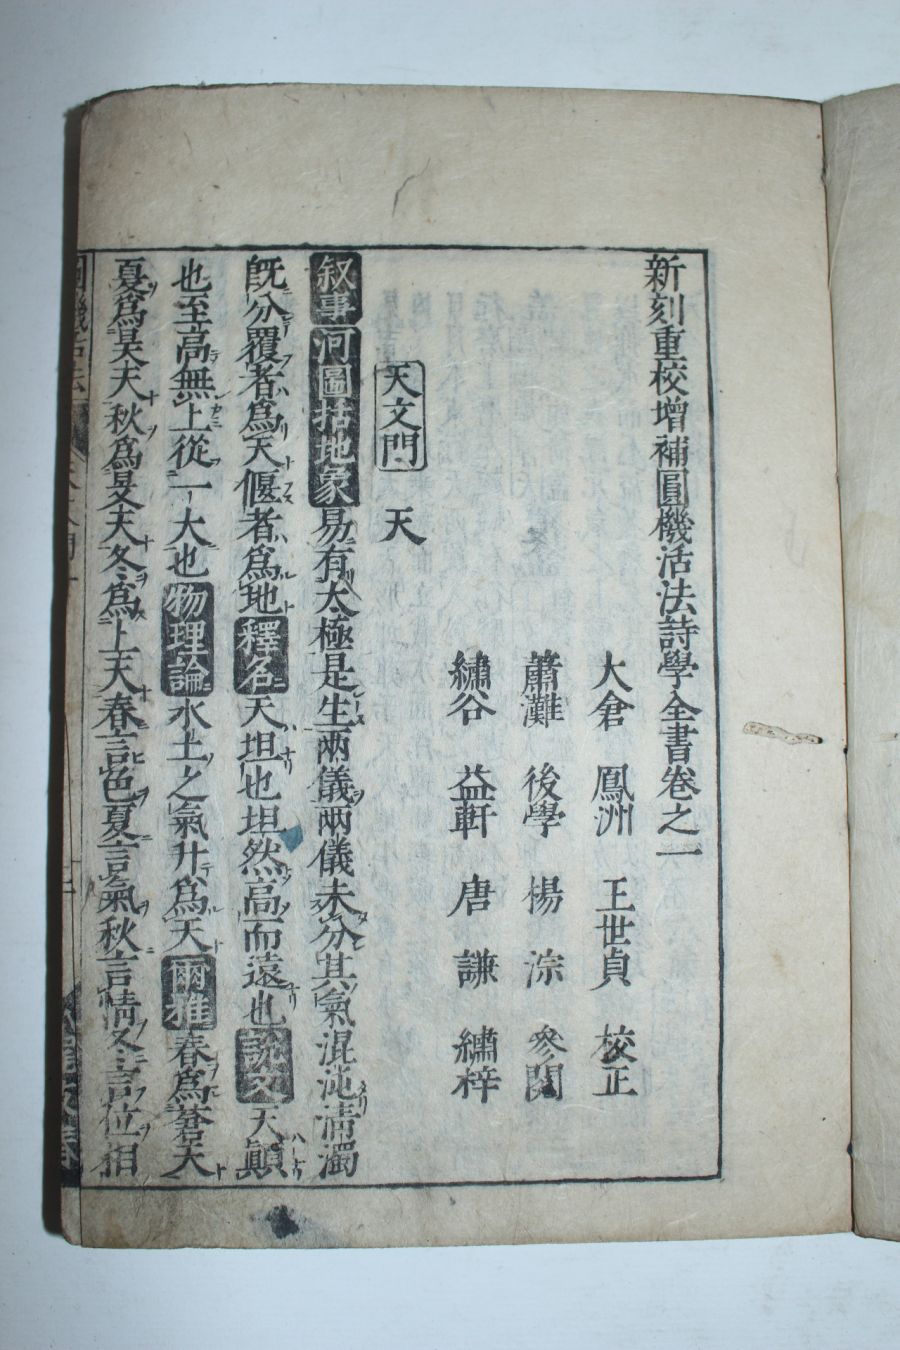 新刻重校增補圓機活法詩學全書卷之一
大倉 鳳洲 王世貞 校正
蕭灘 後學 楊淙 參閱
繡谷 益軒 唐謙 繡梓
天文門 天
叙事 河圖括地象 易有太極是生兩儀兩儀未分其氣混沌清濁
既分覆者爲天偃者爲地 釋名 天坦也坦然高而遠也 說文 天顛
也至高無上從一大也 物理論 水土之氣升爲天 爾雅 春爲蒼天
夏爲昊天秋爲旻天冬爲上天春言色夏言氣秋言情冬言位相